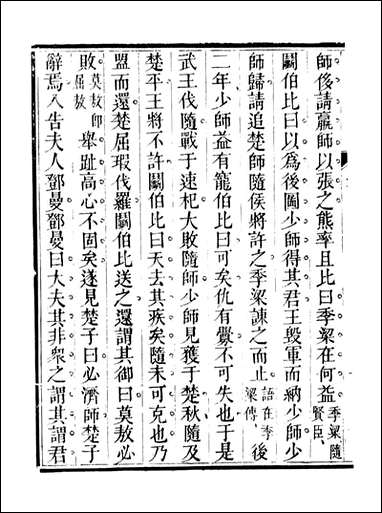 師侈請羸師以張之熊率且比曰季梁在何益季梁隨賢臣
鬭伯比曰以爲後圖少師得其君王毀軍而納少師少
師歸請追楚師隨侯將許之季梁諫之而止語在季梁傳後
二年少師益有寵伯比曰可矣仇有釁不可失也于是
武王伐隨戰于速杞大敗隨師少師見獲于楚秋隨及
楚平王將不許鬭伯比曰天去其疾矣隨未可克也乃
盟而還楚屈瑕伐羅鬭伯比送之還謂其御曰莫敖必
敗莫敖卽屈敖舉趾高心不固矣遂見楚子曰必濟師楚子
辭焉入告夫人鄧曼鄧曼曰大夫其非衆之謂其謂君